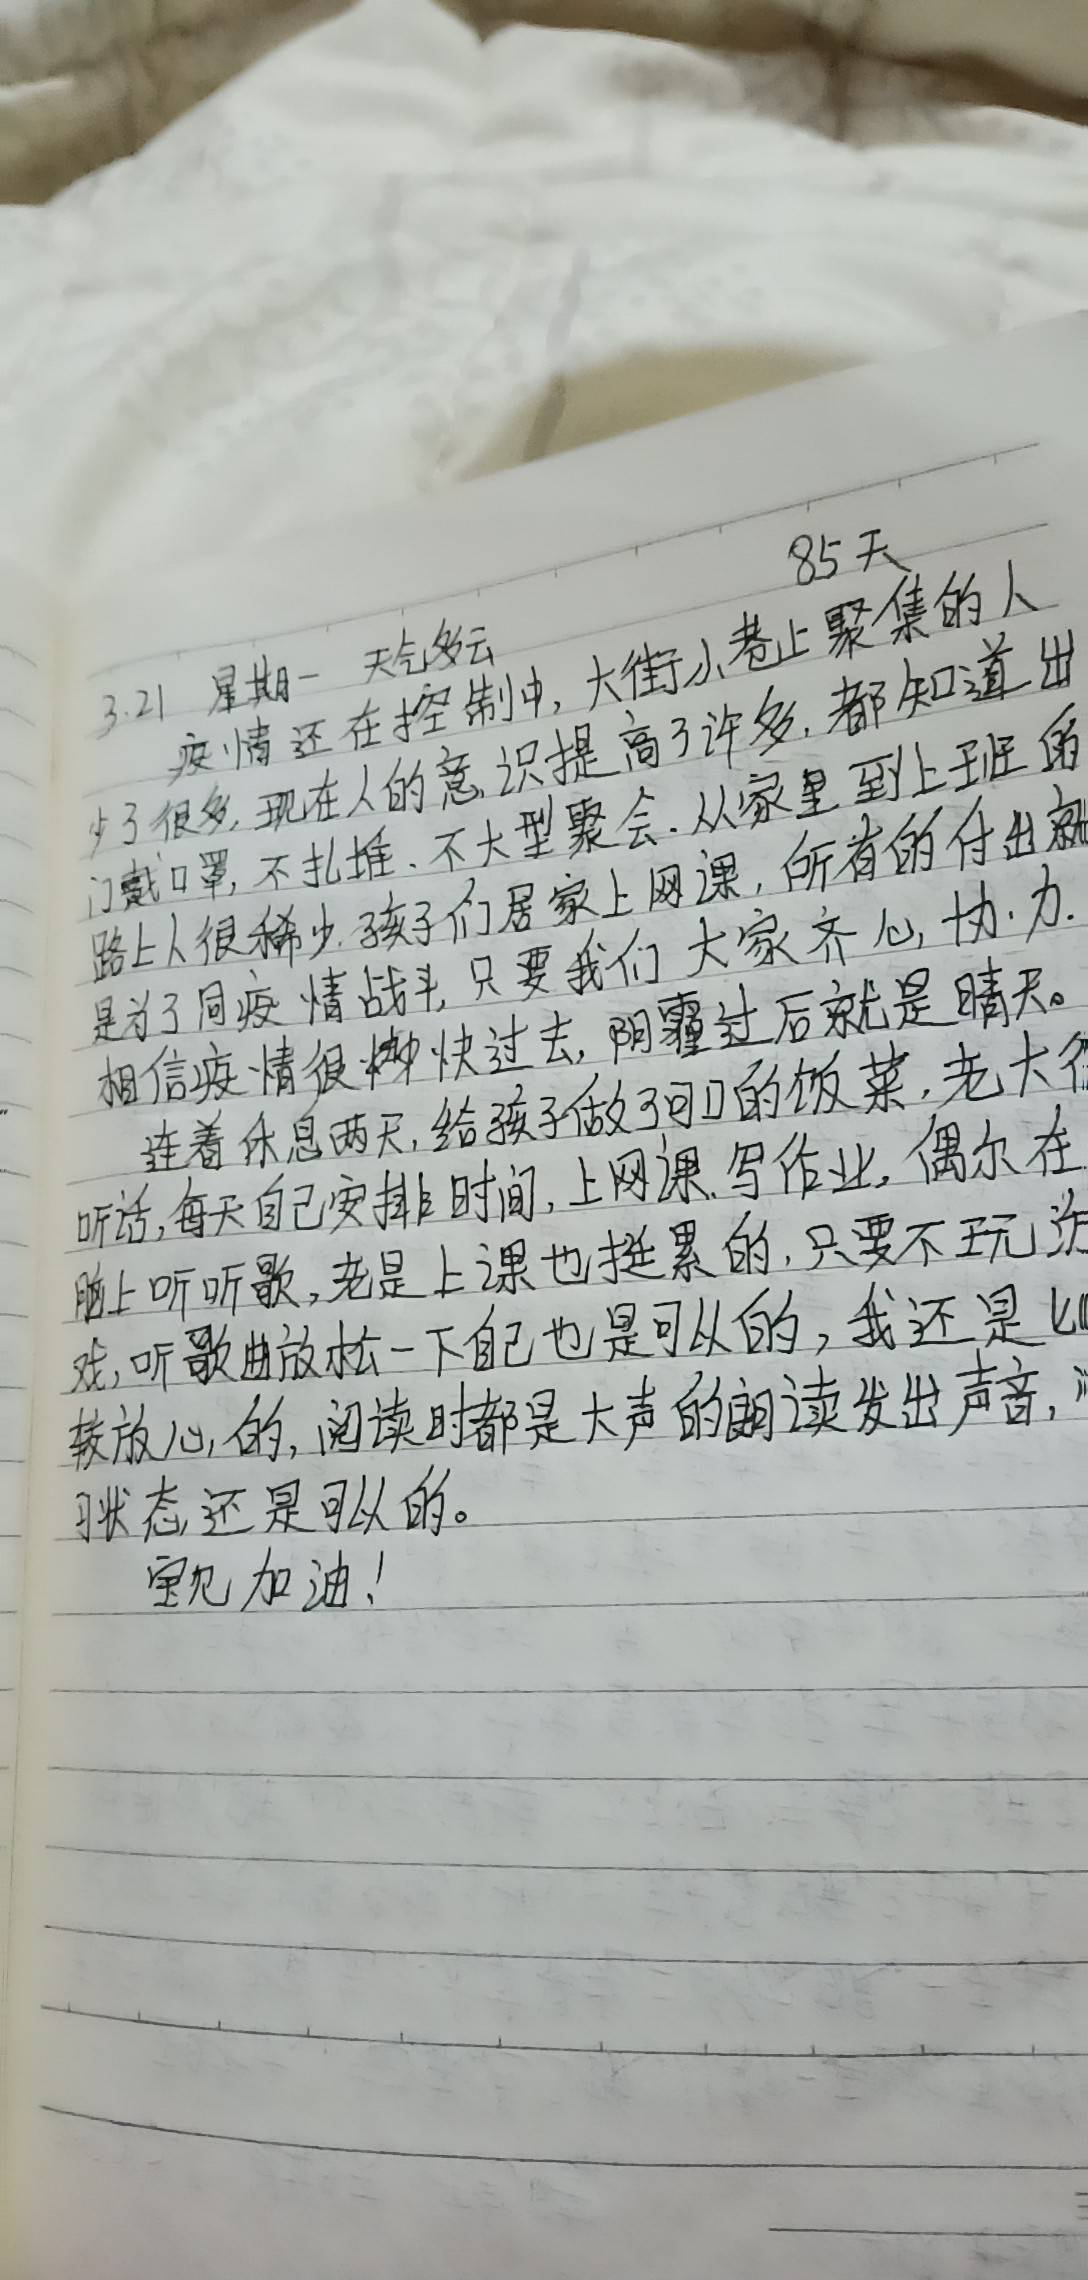 85天
3.21 星期一 天气多云
疫情还在控制中，大街小巷上聚集的人
少了很多，现在人的意识提高了许多，都知道出
门戴口罩，不扎堆、不大型聚会．从家里到上班的
路上人很稀少．孩子们居家上网课，所有的付出就
是为了同疫情战斗，只要我们大家齐心，协力．
相信疫情很快过去，阴霾过后就是晴天。
连着休息两天，给孩子做了可口的饭菜．老大很
听话，每天自己安排时间，上网课．写作业，偶尔在
脑上听听歌，老是上课也挺累的，只要不玩游
戏，听歌曲放松一下自己也是可以的，我还是比
较放心的，阅读时都是大声的朗读发出声音，
习状态还是可以的。
宝儿加油！